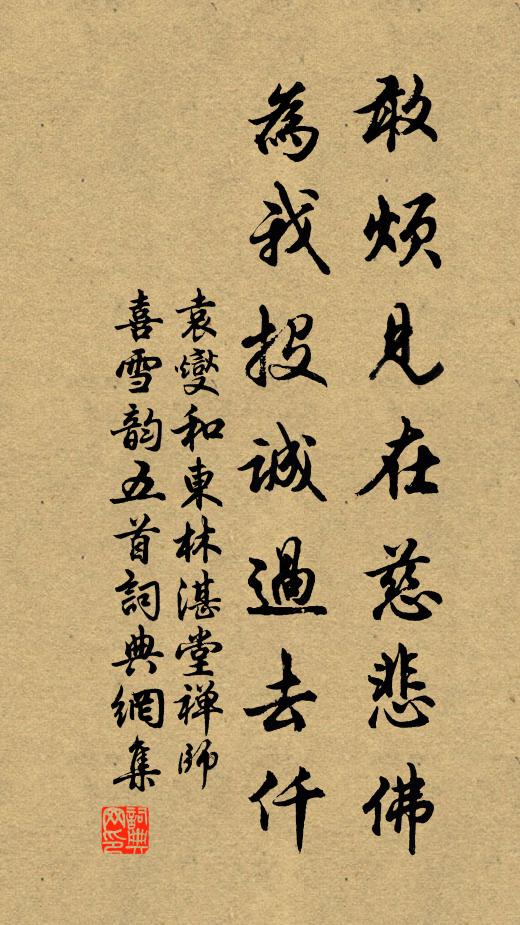 敢煩見在慈悲佛
為我投誠過去仟
袁燮和東林湛堂禅師
喜雪韵五首詞典網集
詞典网印